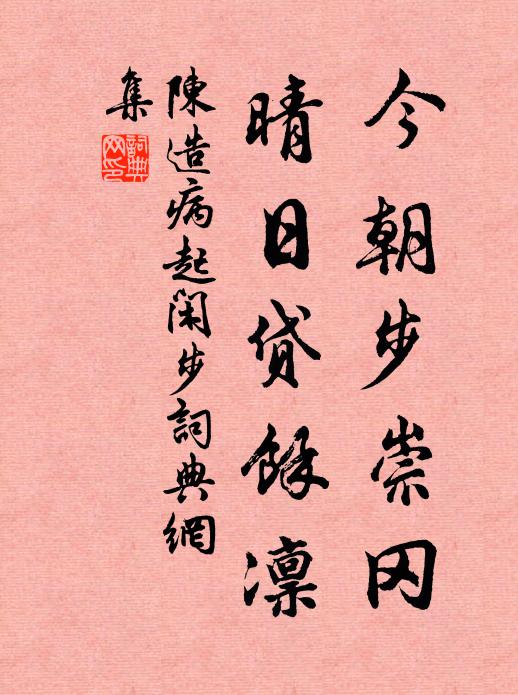 今朝步崇冈
晴日貸餘凛
陳造病起閑步詞典網
集
詞典網印